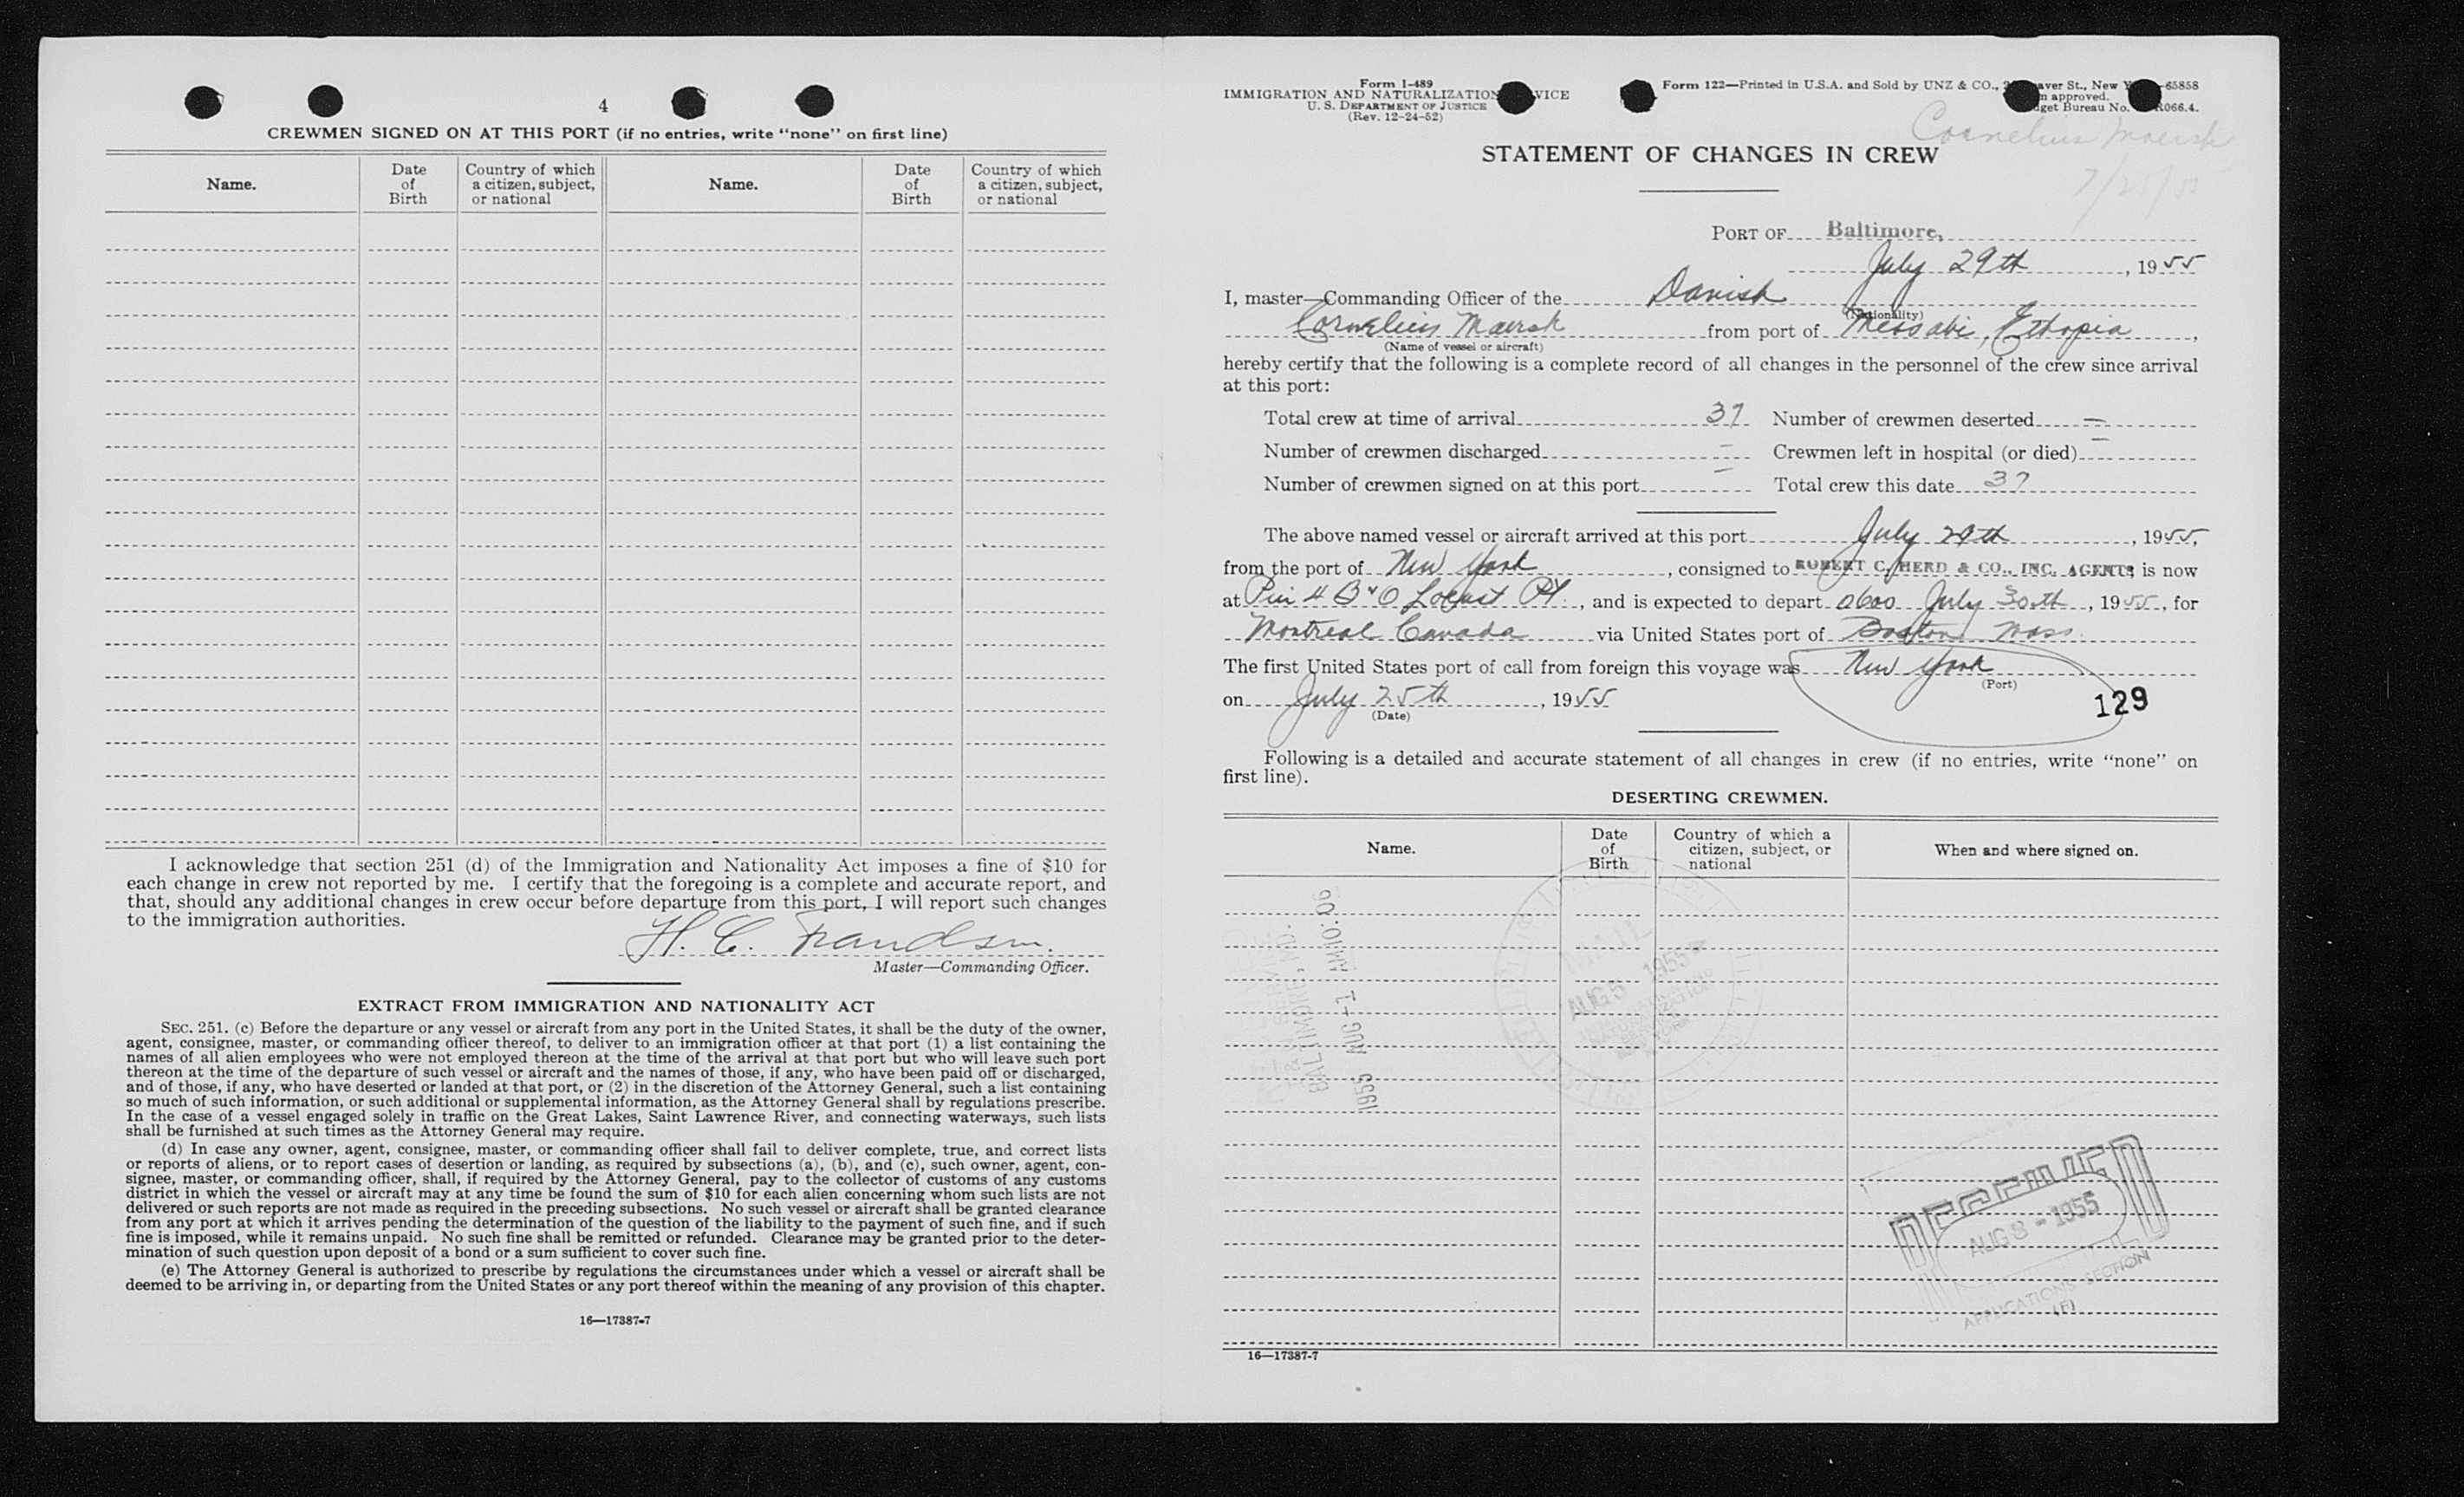 4
CREWMEN SIGNED ON AT THIS PORT (if no entries, write “none” on first line)
Name.
Date of Birth
Country of which a citizen, subject, or national
Name.
Date of Birth
Country of which a citizen, subject, or national
I acknowledge that section 251 (d) of the Immigration and Nationality Act imposes a fine of $10 for
each change in crew not reported by me. I certify that the foregoing is a complete and accurate report, and
that, should any additional changes in crew occur before departure from this port, I will report such changes
to the immigration authorities.
H. C. Frandsen.
Master—Commanding Officer.
EXTRACT FROM IMMIGRATION AND NATIONALITY ACT
SEC. 251. (c) Before the departure or any vessel or aircraft from any port in the United States, it shall be the duty of the owner,
agent, consignee, master, or commanding officer thereof, to deliver to an immigration officer at that port (1) a list containing the
names of all alien employees who were not employed thereon at the time of the arrival at that port but who will leave such port
thereon at the time of the departure of such vessel or aircraft and the names of those, if any, who have been paid off or discharged,
and of those, if any, who have deserted or landed at that port, or (2) in the discretion of the Attorney General, such a list containing
so much of such information, or such additional or supplemental information, as the Attorney General shall by regulations prescribe.
In the case of a vessel engaged solely in traffic on the Great Lakes, Saint Lawrence River, and connecting waterways, such lists
shall be furnished at such times as the Attorney General may require.
(d) In case any owner, agent, consignee, master, or commanding officer shall fail to deliver complete, true, and correct lists
or reports of aliens, or to report cases of desertion or landing, as required by subsections (a), (b), and (c), such owner, agent, con-
signee, master, or commanding officer, shall, if required by the Attorney General, pay to the collector of customs of any customs
district in which the vessel or aircraft may at any time be found the sum of $10 for each alien concerning whom such lists are not
delivered or such reports are not made as required in the preceding subsections. No such vessel or aircraft shall be granted clearance
from any port at which it arrives pending the determination of the question of the liability to the payment of such fine, and if such
fine is imposed, while it remains unpaid. No such fine shall be remitted or refunded. Clearance may be granted prior to the deter-
mination of such question upon deposit of a bond or a sum sufficient to cover such fine.
(e) The Attorney General is authorized to prescribe by regulations the circumstances under which a vessel or aircraft shall be
deemed to be arriving in, or departing from the United States or any port thereof within the meaning of any provision of this chapter.
16—17387-7
Form I-489
IMMIGRATION AND NATURALIZATION
U. S. DEPARTMENT OF JUSTICE
(Rev. 12-24-52)
Form 122—Printed in U.S.A. and Sold by UNZ & CO., St., New 65858
approved.
Bureau No.
Cornelius Maersk
7/25/55
STATEMENT OF CHANGES IN CREW
PORT OF Baltimore,
July 29th, 1955
I, master—Commanding Officer of the Danish
(Nationality)
Cornelius Maersk from port of Ethopia,
(Name of vessel or aircraft)
hereby certify that the following is a complete record of all changes in the personnel of the crew since arrival
at this port:
Total crew at time of arrival 37 Number of crewmen deserted —
Number of crewmen discharged — Crewmen left in hospital (or died) —
Number of crewmen signed on at this port — Total crew this date 37
The above named vessel or aircraft arrived at this port July 29th, 1955,
from the port of New York, consigned to ROBERT C. HERD & CO., INC. AGENTS, is now
at Pier 4 B&O Locust Pt., and is expected to depart 0600 July 30th, 1955, for
Montreal Canada via United States port of Boston Mass.
The first United States port of call from foreign this voyage was New York
(Port)
on July 25th, 1955
(Date)
129
Following is a detailed and accurate statement of all changes in crew (if no entries, write “none” on
first line).
DESERTING CREWMEN.
Name.
Date of Birth
Country of which a citizen, subject, or national
When and where signed on.
1955 AUG -1 AM 10:
BALTIMORE, MD.
MAIL
AUG 5 1955
RECEIVED
AUG 8 - 1955
APPLICATIONS SECTION
(F)
16—17387-7